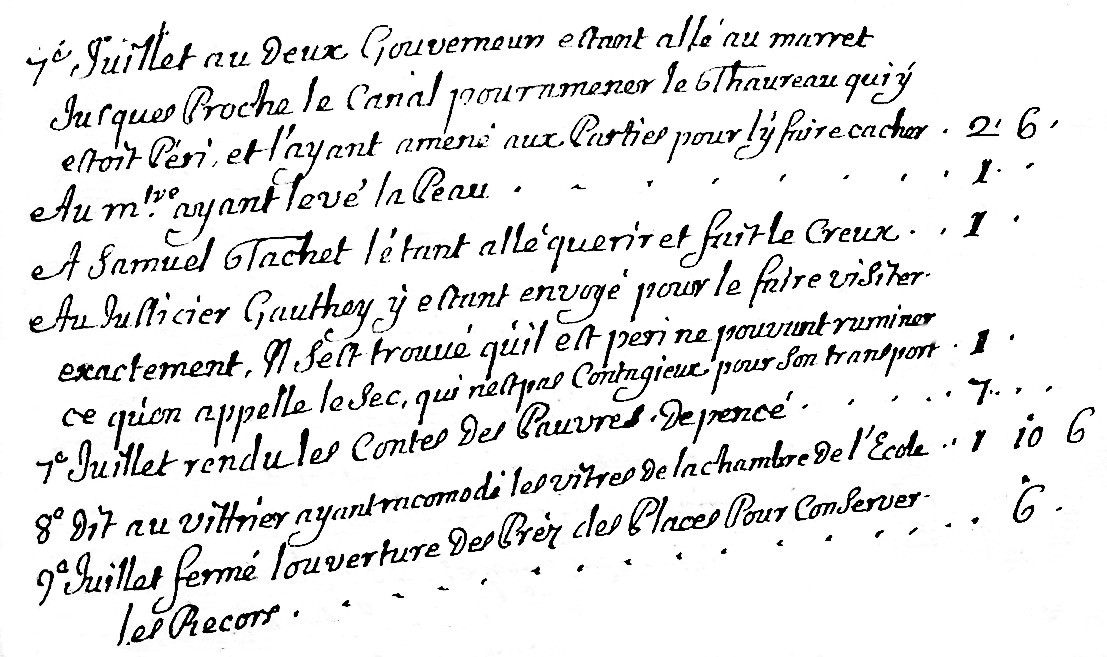 7e. Juillet au Deux Gouverneur estant allé au marret
Jusques Proche le Canal pour amener le Thaureau qui ÿ
estoit Péri, et l'ayant amené aux Parties pour lÿ faire cacher . 2. 6.
Au mtre. ayant levé la Peau . . . . . . . . 1. .
A Samuel Tachet l'étant allé querir et fait le Creux . . 1 .
Au Justicier Gauthey ÿ estant envoyé pour le faire visiter.
exactement, Il s'est trouué qu'il est peri ne pouvant ruminer
ce qu'on appelle le Sec, qui nest pas Contagieux pour Son transport . 1 .
7e Juillet rendu les Contes des Pauvres. Depencé . . . . . 7. . .
8e Dit au vittrier ayant racomodé les vîtres de la chambre de l'Ecole .. 1 10 6
9e Juillet fermé l'ouverture des Préz des Places Pour Conserver.
les Recors . . . . . . . . . . . . 6 .